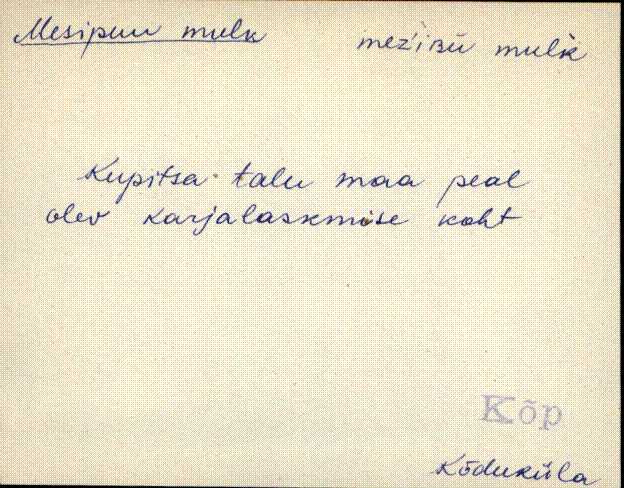 Mesipuu mulk meźiʙū mulk̀
Kupitsa talu maa peal
olev karjalaskmise koht
Kõp
Kõduküla